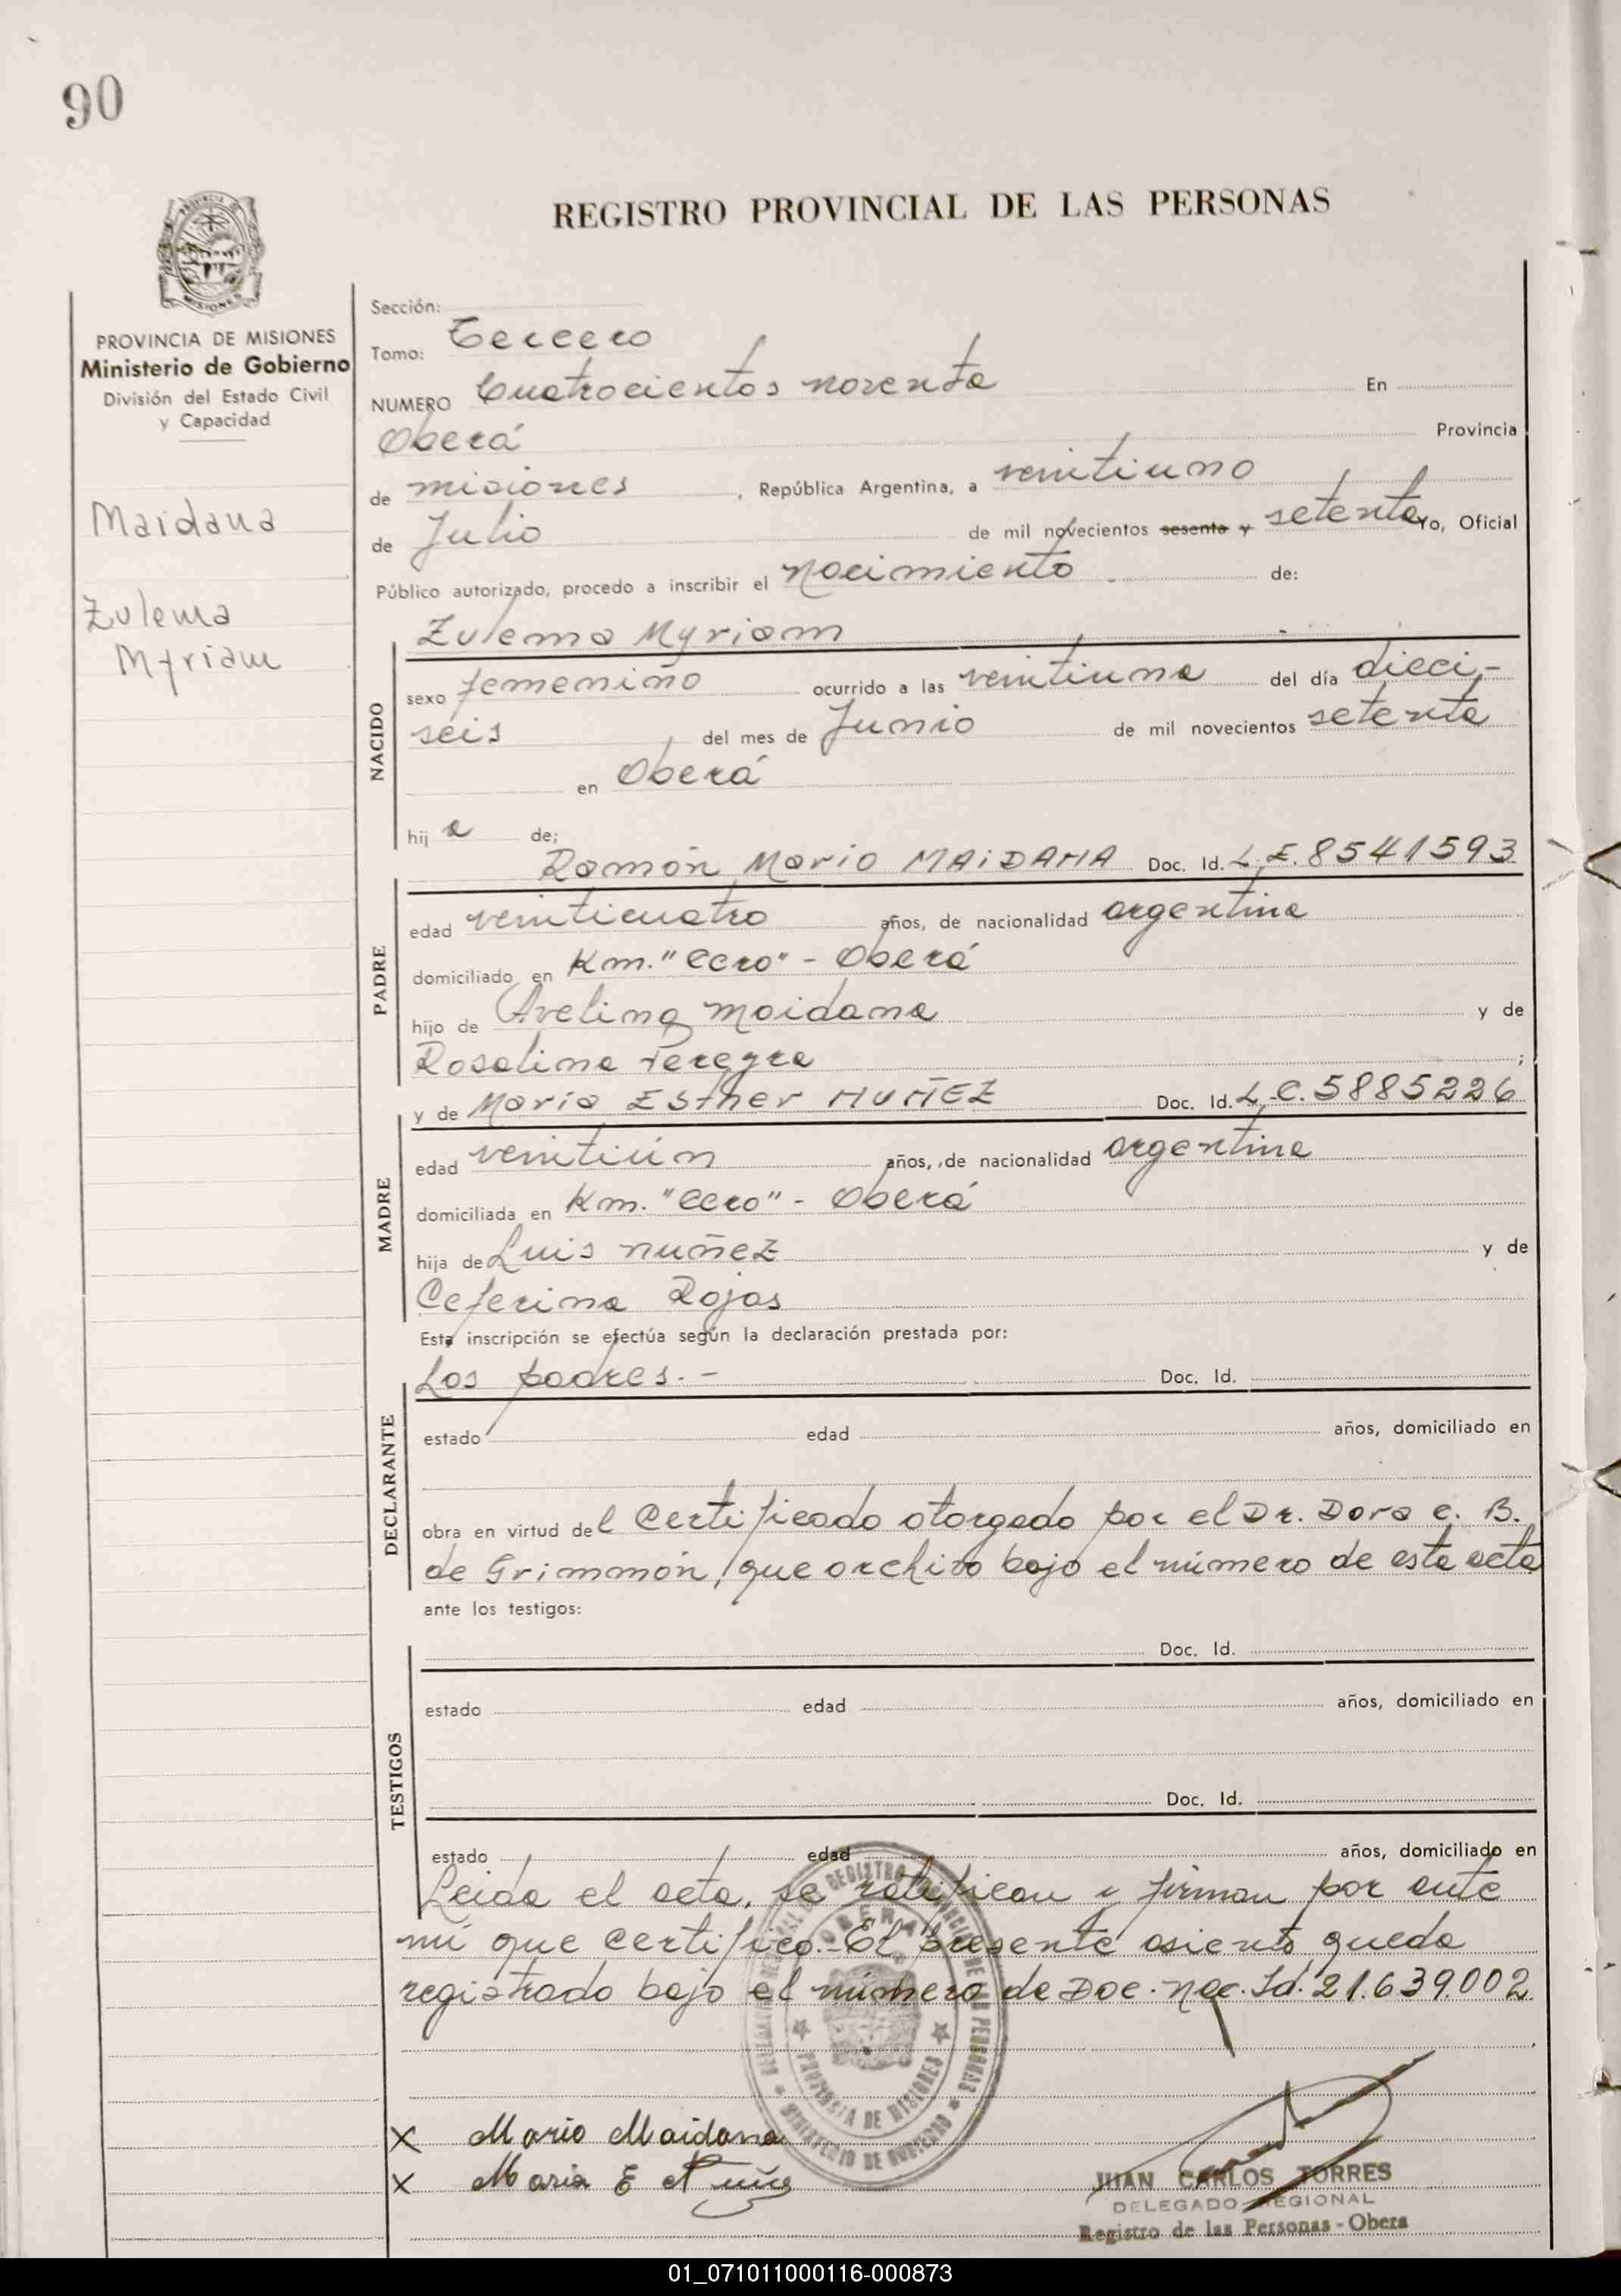 90
REGISTRO PROVINCIAL DE LAS PERSONAS
MISIONES
PROVINCIA DE MISIONES
Ministerio de Gobierno
División del Estado Civil
y Capacidad
Maidana
Zulema
Myriam
Sección:
Tomo: Tercero
NUMERO Cuatrocientos noventa En
Oberá Provincia
de misiones, República Argentina, a veintiuno
de Julio de mil novecientos sesenta y setenta Yo, Oficial
Público autorizado, procedo a inscribir el nacimiento de:
Zulema Myriam
NACIDO
sexo femenino ocurrido a las veintiuna del día dieci-
seis del mes de Junio de mil novecientos setenta
en Oberá
hij a de;
Ramón Mario MAIDANA Doc. Id. L.E. 8541593
PADRE
edad veinticuatro años, de nacionalidad argentina
domiciliado en Km. "Cero" - Oberá
hijo de Avelino Maidana y de
Rosalina Pereyra ;
y de Maria Esther NUÑEZ Doc. Id. L.C. 5885226
MADRE
edad veintiún años, de nacionalidad argentina
domiciliada en Km. "Cero" - Oberá
hija de Luis nuñez y de
Ceferina Rojas
Esta inscripción se efectúa según la declaración prestada por:
Los padres.- Doc. Id.
DECLARANTE
estado edad años, domiciliado en
obra en virtud del Certificado otorgado por el Dr. Dora C. B.
de Grimmón, que archivo bajo el número de esta acta
ante los testigos:
Doc. Id.
TESTIGOS
estado edad años, domiciliado en
Doc. Id.
estado edad años, domiciliado en
Leida el acta, se ratifican y firman por ante
mi que certifico.- El presente asiento queda
registrado bajo el número de Doc. nac. Id. 21.639.002
PROVINCIA DE MISIONES
MINISTERIO DE GOBIERNO
X Mario Maidana
X Maria E Nuñez
JUAN CARLOS TORRES
DELEGADO REGIONAL
Registro de las Personas - Obera
01_071011000116-000873